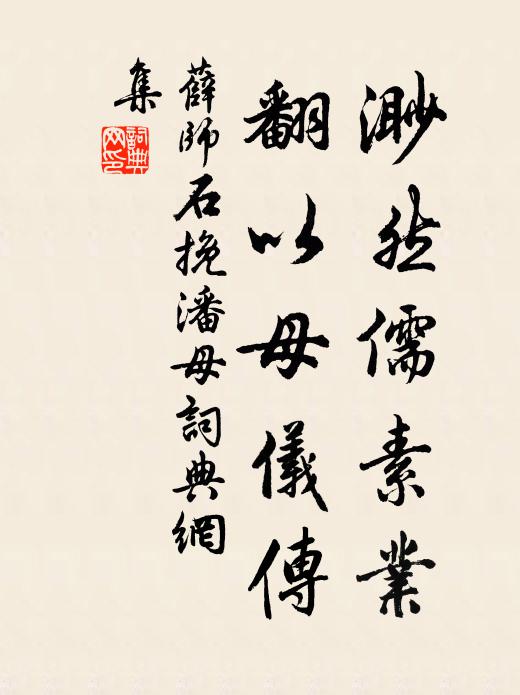 渺然儒素業
翻以母儀傳
薛師石挽潘母詞典網
集
詞典網印